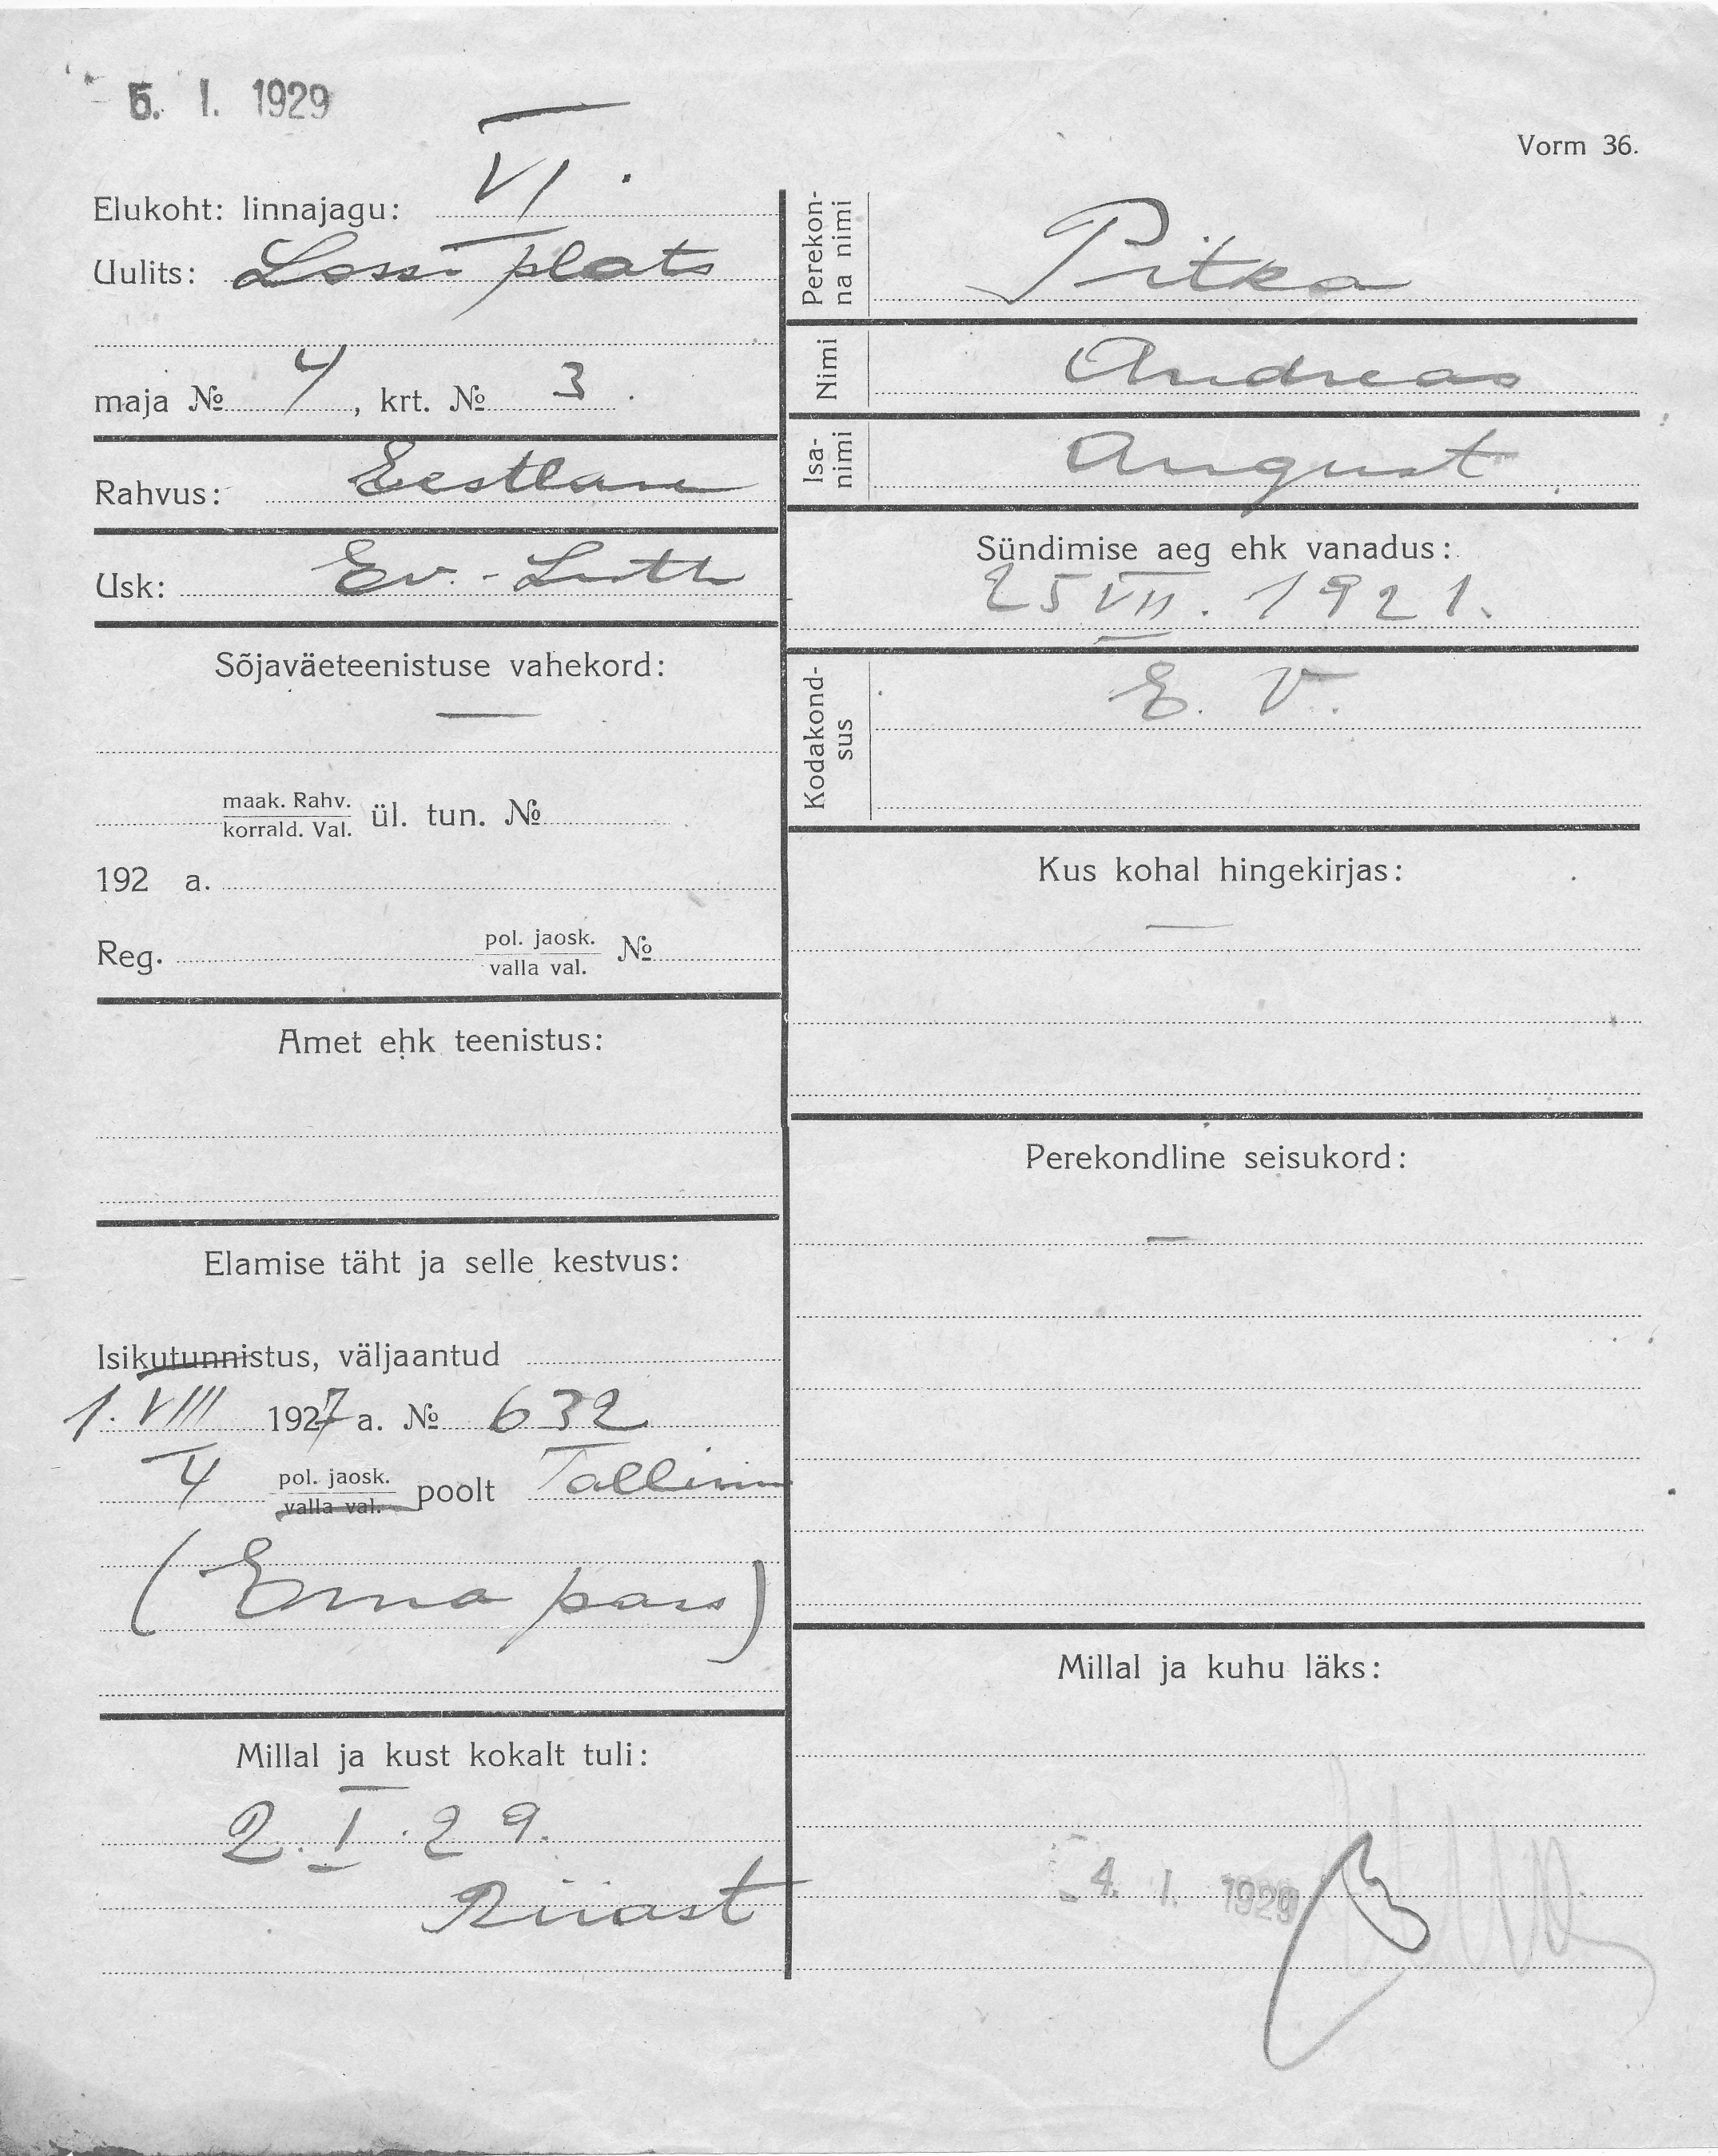 5. I. 1929
Vorm 36.
Elukoht: linnajagu: VI.
Uulits: Lossi plats
maja № 4, krt. № 3.
Rahvus: Eestlane
Usk: Ev.-Luth
Sõjaväeteenistuse vahekord:
—
maak. Rahv.
korrald. Val. ül. tun. №
192 a.
Reg. pol. jaosk. №
valla val.
Amet ehk teenistus:
Elamise täht ja selle kestvus:
Isikutunnistus, väljaantud
1. VIII 1927 a. № 632
4 pol. jaosk. poolt Tallinn
valla val.
(Ema pass)
Millal ja kust kokalt tuli:
2. I. 29.
Riiast
Perekon-
na nimi
Pitka
Nimi Andreas
Isa-
nimi
August
Sündimise aeg ehk vanadus:
25 VII. 1921.
Kodakond-
sus
E. V.
Kus kohal hingekirjas:
—
Perekondline seisukord:
—
Millal ja kuhu läks:
-4. I. 1929